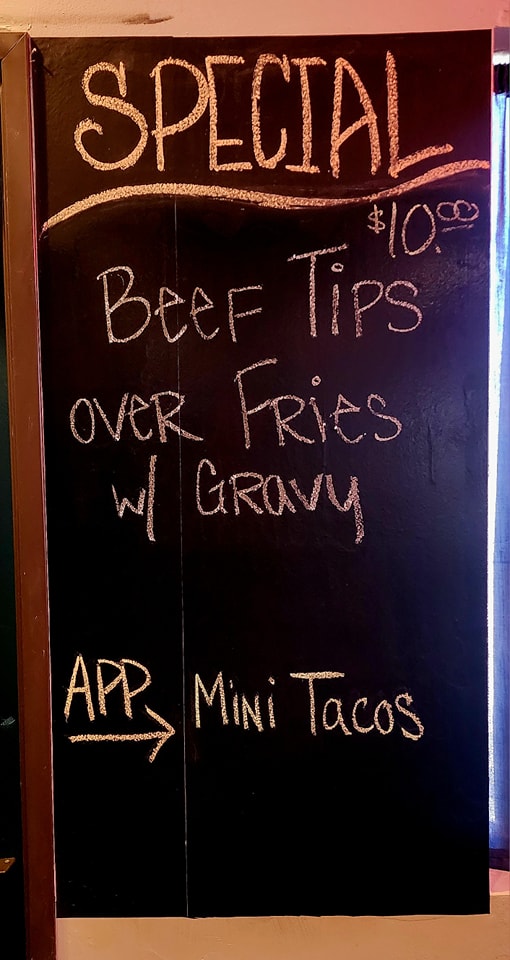 SPECIAL
$10.00
Beef Tips
over Fries
w/ Gravy
APP → Mini Tacos